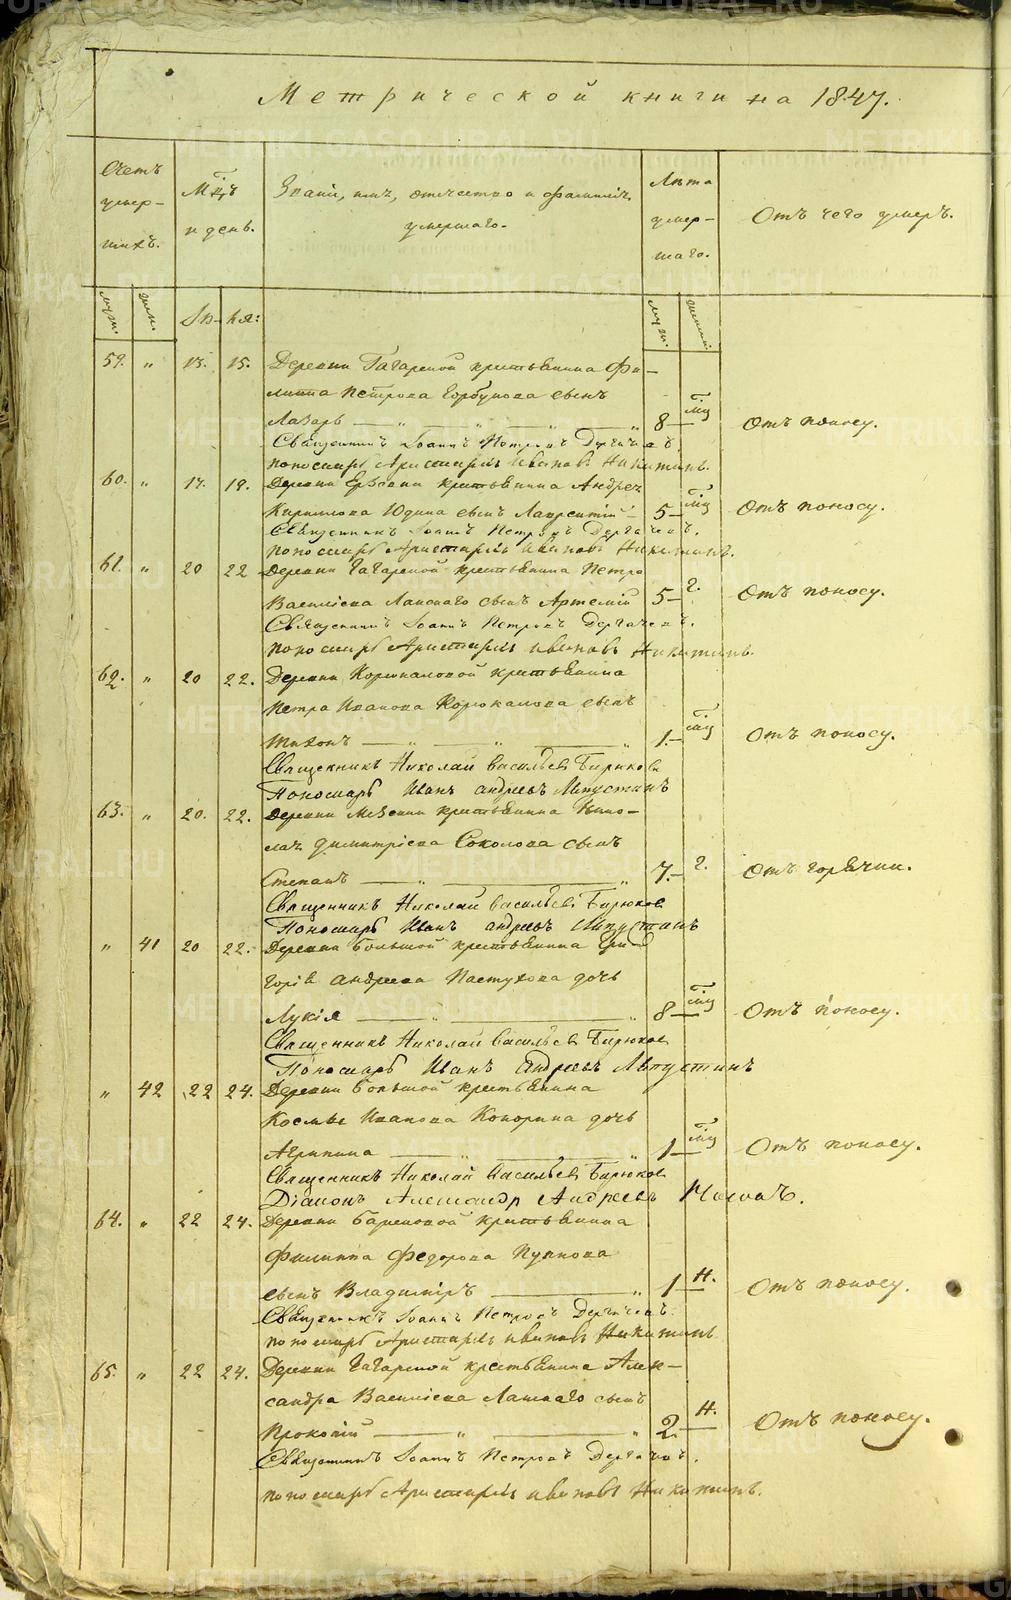 Метрической книги на 1847.
Счетъ умер-шихъ.
Мц҃ъ и день.
Званіе, имя, отчество и фамилія умершаго.
Лѣта умер-шаго.
Отъ чего умеръ.
муж. жен. Ію-ля: муж. женский
59. „ 13. 15. Деревни Гагарской крестьянина Фи-
липпа Петрова Горбунова сынъ
Лазарь — „ — „ — „ 8 — мц Отъ поносу.
Священникъ Іоаннъ Петровъ Дергачевъ
пономарь Аристархъ Ивановъ Никитинъ.
60. „ 17. 19. Деревни крестьянина Андрея
Кирилова Юдина сынъ Лаврентій 5 — мц Отъ поносу.
Священникъ Іоаннъ Петровъ Дергачевъ.
пономарь Аристархъ Ивановъ Никитинъ.
61. „ 20 22 Деревни Гагарской крестьянина Петра
Василіева Ланскаго сынъ Артемій 5 — г. Отъ поносу.
Священникъ Іоаннъ Петровъ Дергачевъ.
пономарь Аристархъ Ивановъ Никитинъ.
62. „ 20 22. Деревни крестьянина
Петра Иванова сынъ
Тихонъ — „ — „ 1. — мц Отъ поносу.
Священникъ Николай Васильевъ Бирюковъ
Пономарь Иванъ Андреевъ Ляпустинъ
63. „ 20. 22. Деревни Мезенки крестьянина Нико-
лая Димитріева Соколова сынъ
Степанъ — „ — „ 7. — г. Отъ горячки.
Священникъ Николай Васильевъ Бирюков
Пономарь Иванъ Андреевъ Ляпустинъ
„ 41 20 22. Деревни Большой крестьянина Гри-
горія Андреева Пастухова дочь
Лукія — „ — „ 8 — мц Отъ поносу.
Священникъ Николай Васильевъ Бирюков
Пономарь Иванъ Андреевъ Ляпустинъ
„ 42 22 24. Деревни Большой крестьянина
Космы Иванова дочь
Агрипина — „ — „ 1 — мц Отъ поносу.
Священникъ Николай Васильевъ Бирюков
Діаконъ Александр Андреевъ
64. „ 22 24. Деревни крестьянина
Филиппа Федорова
сынъ Владиміръ — „ 1 — н. Отъ поносу.
Священникъ Іоаннъ Петровъ Дергачевъ.
пономарь Аристархъ Ивановъ Никитинъ
65. „ 22 24. Деревни Гагарской крестьянина Алек-
сандра Василіева Ланскаго сынъ
Прокопій — „ — „ 2. — н. Отъ поносу.
Священникъ Іоаннъ Петровъ Дергачевъ.
пономарь Аристархъ Ивановъ Никитинъ.
METRIKI.GASO-URAL.RU